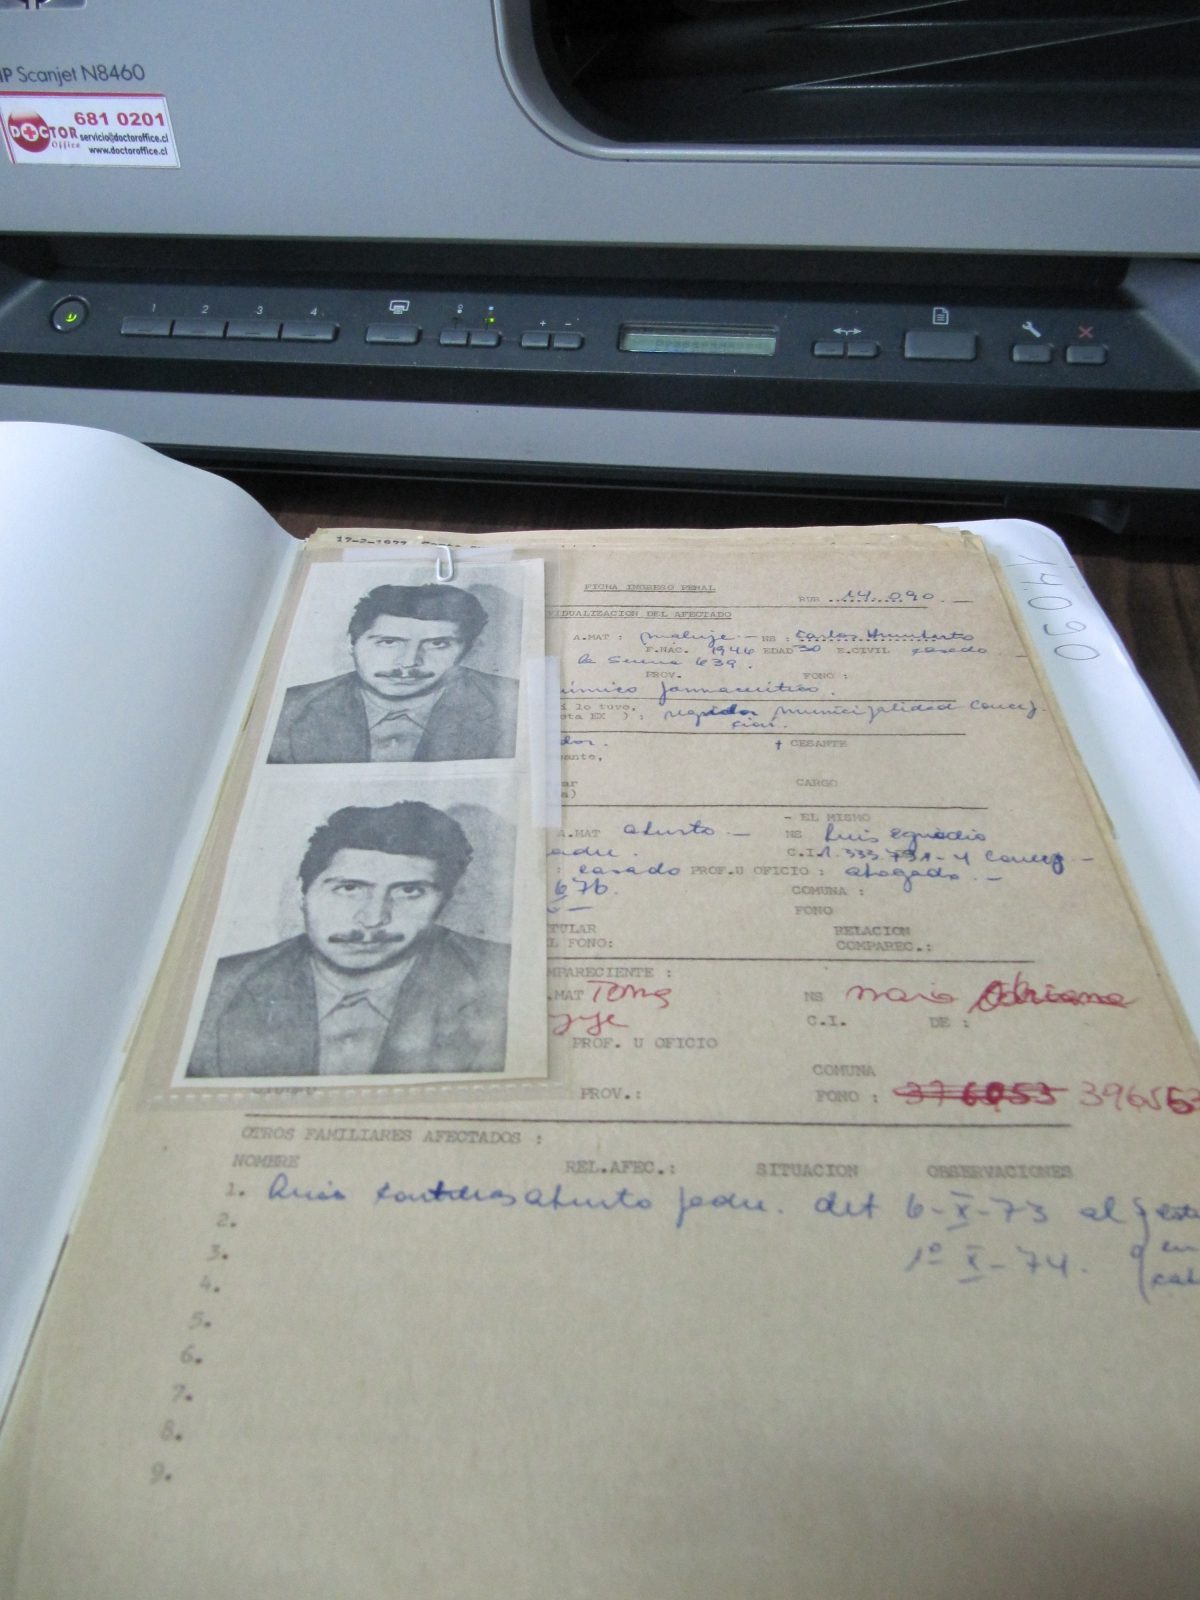 HP Scanjet N8460
DOCTOR Office
681 0201
servicio@doctoroffice.cl
www.doctoroffice.cl
1 2 3 4
+ -
17-2-1977
FICHA INGRESO PENAL
RUB 14.090
14.090
VIDUALIZACION DEL AFECTADO
A.MAT : Maluje NS : Carlos Humberto
F.NAC. 1946 EDAD 30 E.CIVIL casado
la Serena 639.
PROV. FONO :
químico farmacéutico.
i lo tuvo,
ota EX ) : regidor municipalidad Concep.
ción.
dor. + CESANTE
CARGO
- EL MISMO
A.MAT aburto NS Luis Egnidio
adre. C.I. Concep
: casado PROF.U OFICIO : abogado.
676. COMUNA :
FONO
TULAR RELACION
L FONO: COMPAREC.:
MPARECIENTE :
.MAT NS Maria Adriana
C.I. DE :
PROF. U OFICIO
COMUNA
PROV.: FONO : 376053 396563
OTROS FAMILIARES AFECTADOS :
NOMBRE REL.AFEC.: SITUACION OBSERVACIONES
1. Contreras aburto padre. det 6-X-73 al
2.
3. 1º X-74.
4.
5.
6.
7.
8.
9.